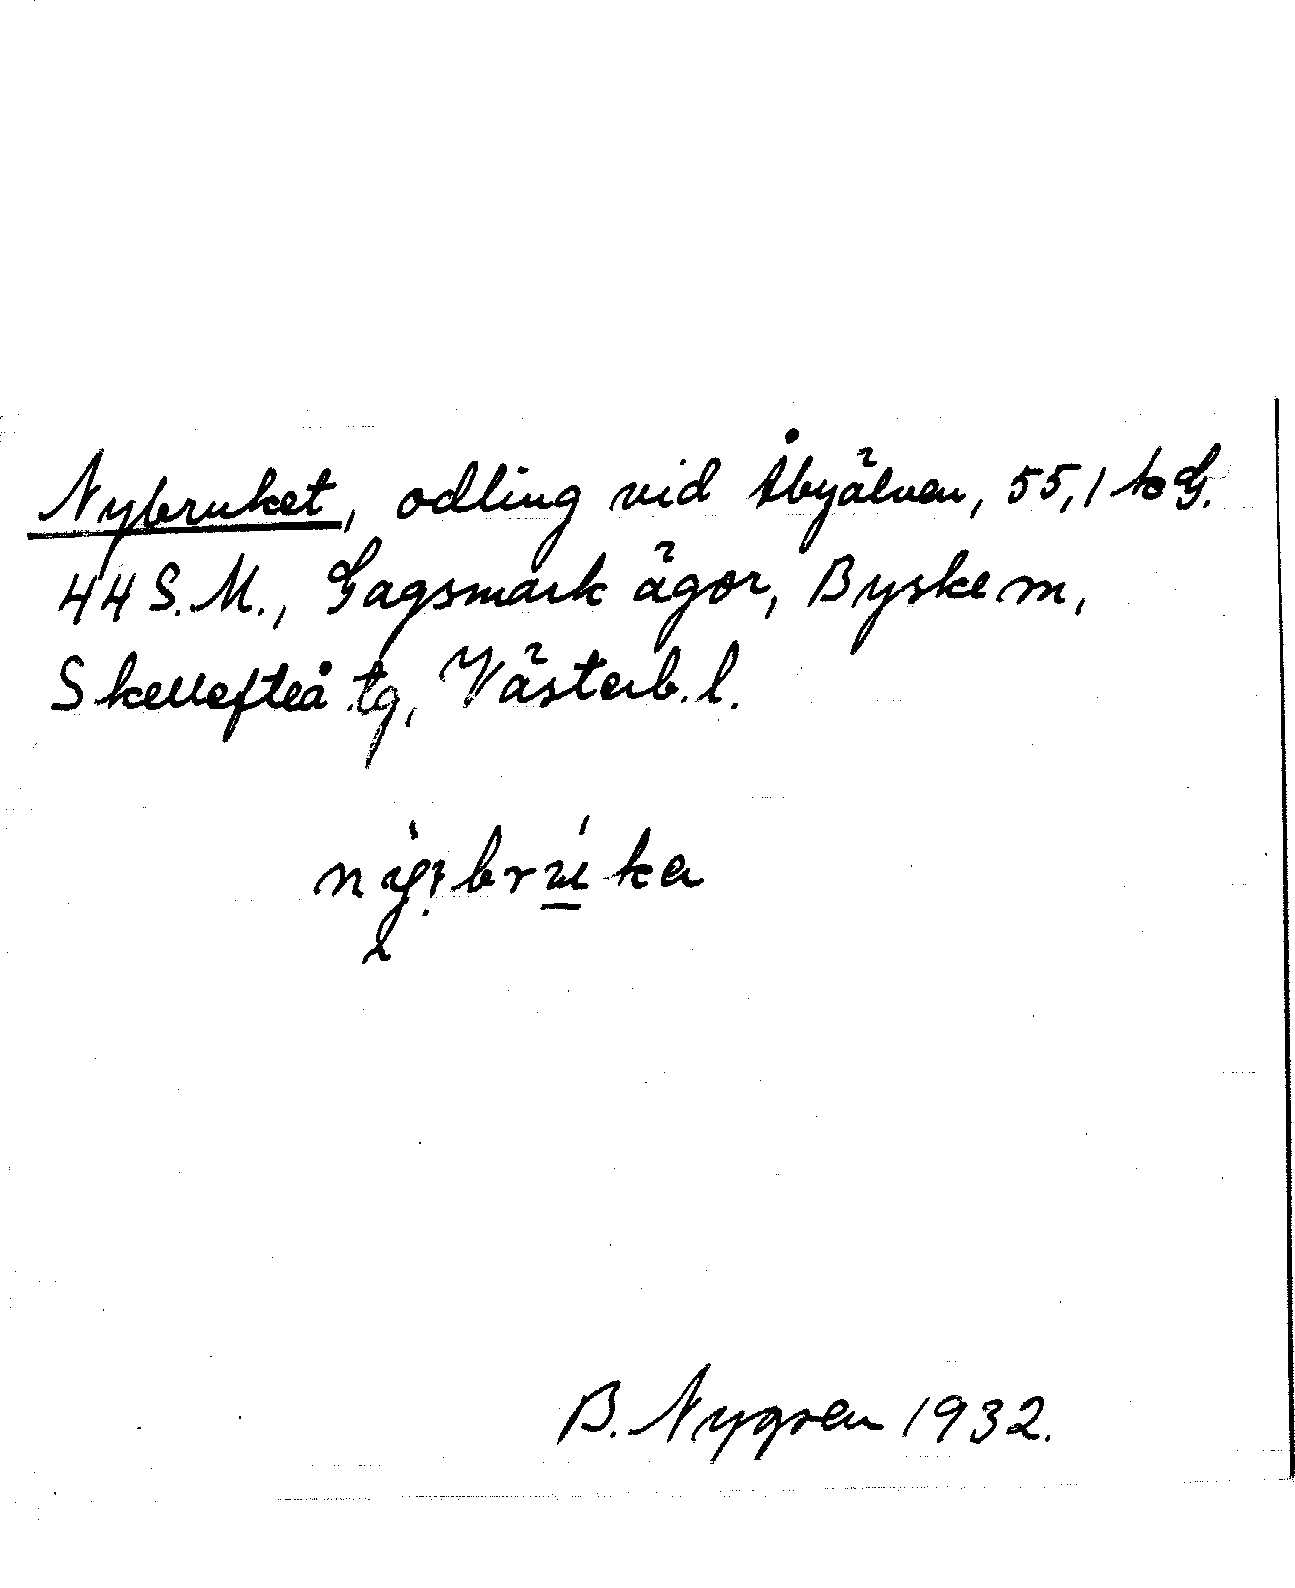 Nybruket, odling vid Åbyälven, 55,1 k G.
44 S.M., Gagsmark ägor, Byske m,
Skellefteå tg, Västerb. l.
B. Nygren 1932.